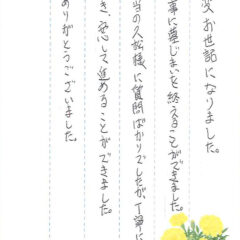 段お世話になりました。
事に墓じまいを終えることができました。
当の久松様に質問ばかりでしたが、丁寧に
き、安心して進めることができました。
ありがとうございました。